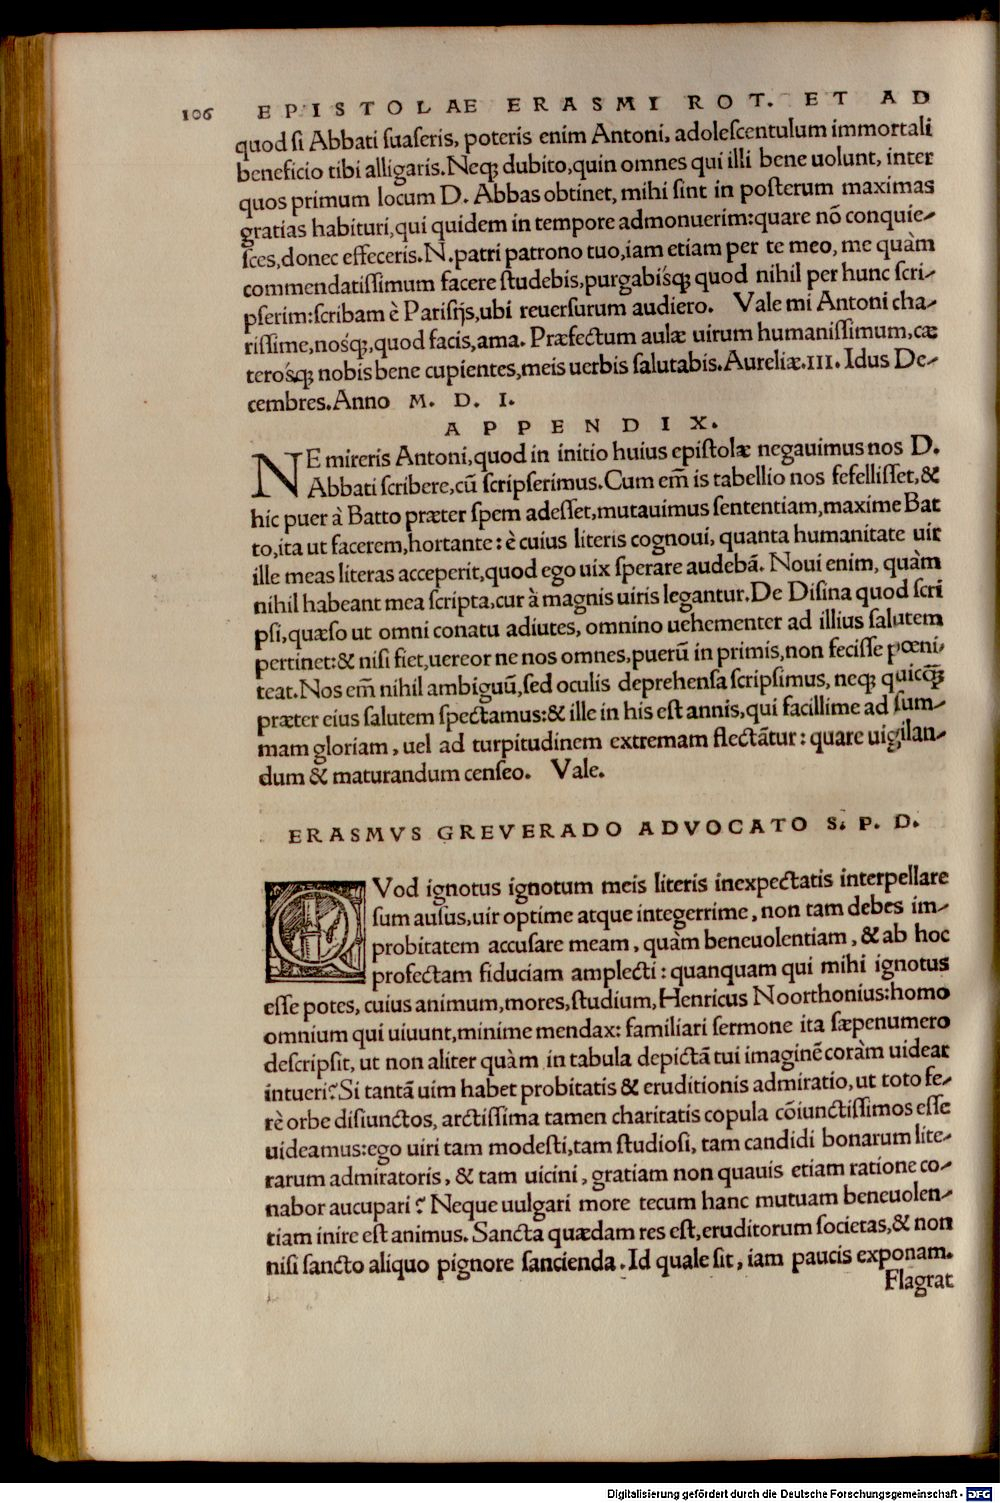 106 EPISTOLAE ERASMI ROT. ET AD
quod ſi Abbati ſuaſeris, poteris enim Antoni, adoleſcentulum immortali
beneficio tibi alligaris. Neq; dubito, quin omnes qui illi bene uolunt, inter
quos primum locum D. Abbas obtinet, mihi ſint in poſterum maximas
gratias habituri, qui quidem in tempore admonuerim: quare nō conquie-
ſces, donec effeceris. N. patri patrono tuo, iam etiam per te meo, me quàm
commendatiſſimum facere ſtudebis, purgabísq; quod nihil per hunc ſcri-
pſerim: ſcribam è Pariſijs, ubi reuerſurum audiero. Vale mi Antoni cha-
riſſime, nosq́;, quod facis, ama. Præfectum aulæ uirum humaniſſimum, cæ
terosq́; nobis bene cupientes, meis uerbis ſalutabis. Aureliæ. III. Idus De-
cembres. Anno M. D. I.
APPENDIX.
NE mireris Antoni, quod in initio huius epiſtolæ negauimus nos D.
Abbati ſcribere, cū ſcripſerimus. Cum em̄ is tabellio nos fefelliſſet, &
hic puer à Batto præter ſpem adeſſet, mutauimus ſententiam, maxime Bat
to, ita ut facerem, hortante: è cuius literis cognoui, quanta humanitate uir
ille meas literas acceperit, quod ego uix ſperare audebā. Noui enim, quàm
nihil habeant mea ſcripta, cur à magnis uiris legantur. De Diſina quod ſcri
pſi, quæſo ut omni conatu adiutes, omnino uehementer ad illius ſalutem
pertinet: & niſi fiet, uereor ne nos omnes, puerū in primis, non feciſſe pœni-
teat. Nos em̄ nihil ambiguū, ſed oculis deprehenſa ſcripſimus, neq; quicq̄;
præter eius ſalutem ſpectamus: & ille in his eſt annis, qui facillime ad ſum-
mam gloriam, uel ad turpitudinem extremam flectātur: quare uigilan-
dum & maturandum cenſeo. Vale.
ERASMVS GREVERADO ADVOCATO S. P. D.
QVod ignotus ignotum meis literis inexpectatis interpellare
ſum auſus, uir optime atque integerrime, non tam debes im-
probitatem accuſare meam, quàm beneuolentiam, & ab hoc
profectam fiduciam amplecti: quanquam qui mihi ignotus
eſſe potes, cuius animum, mores, ſtudium, Henricus Noorthonius: homo
omnium qui uiuunt, minime mendax: familiari ſermone ita ſæpenumero
deſcripſit, ut non aliter quàm in tabula depictā tui imaginē coràm uidear
intueri? Si tantā uim habet probitatis & eruditionis admiratio, ut toto fe-
rè orbe diſiunctos, arctiſſima tamen charitatis copula cōiunctiſſimos eſſe
uideamus: ego uiri tam modeſti, tam ſtudioſi, tam candidi bonarum lite-
rarum admiratoris, & tam uicini, gratiam non quauis etiam ratione co-
nabor aucupari? Neque uulgari more tecum hanc mutuam beneuolen-
tiam inire eſt animus. Sancta quædam res eſt, eruditorum ſocietas, & non
niſi ſancto aliquo pignore ſancienda. Id quale ſit, iam paucis exponam.
Flagrat
Digitalisierung gefördert durch die Deutsche Forschungsgemeinschaft - DFG